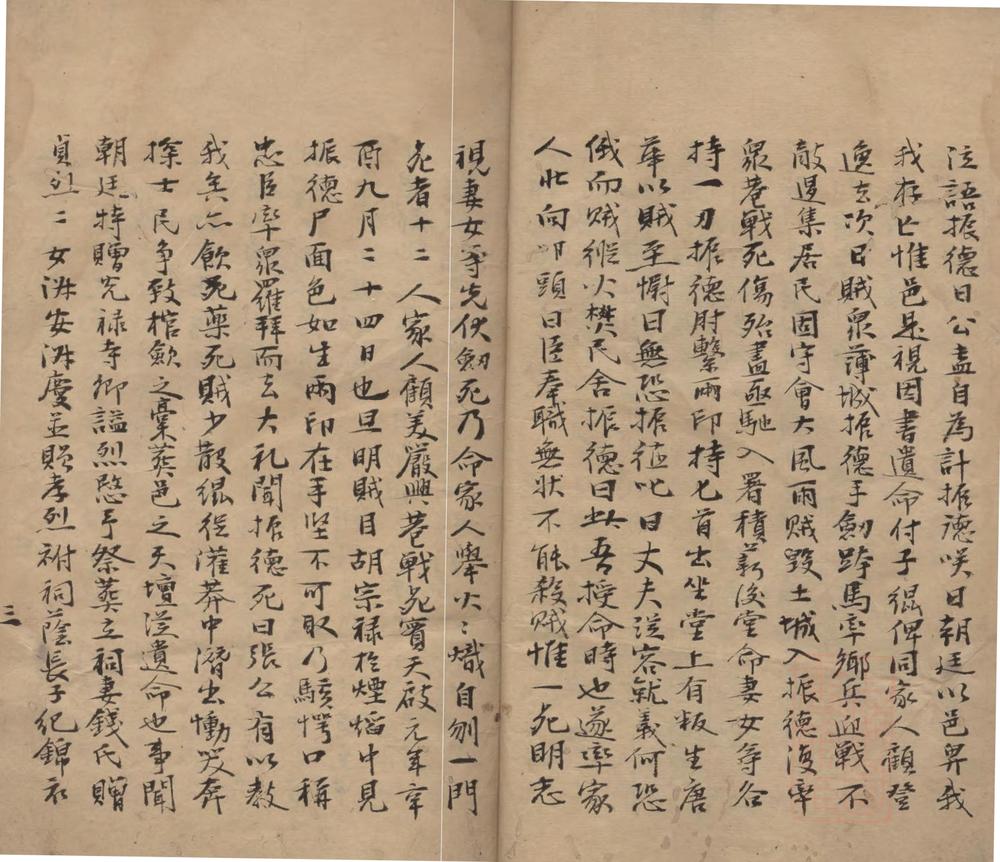 泣語振德曰公盍自為計振德咲曰朝廷以邑畀我
我存亡惟邑是視因書遺命付子緄俾同家人顧登
逸去次日賊衆薄城振德手劒跨馬率鄉兵血戰不
敵退集居民固守會大風雨賊毀土城入振德復率
衆巷戰死傷殆盡亟馳入署積薪後堂命妻女等各
持一刃振德肘繫兩印持匕首出坐堂上有叛生唐
華以賊至懈曰無恐振德叱曰丈夫從容就義何恐
俄而賊縱火樊民舍振德曰此吾授命時也遂率家
人北向叩頭曰臣奉職無狀不能殺賊惟一死明志
視妻女等先伏劒死乃命家人舉火火熾自刎一門
死者十二人家人顧美嚴興巷戰死實天啟元年辛
酉九月二十四日也旦明賊目胡宗祿於煙燄中見
振德尸面色如生兩印在手堅不可取乃駭愕口稱
忠臣率衆羅拜而去大禮聞振德死曰張公有以教
我矣亦飲藥死賊少散緄從灌莽中潛出慟哭奔
探士民爭致棺歛之藁葬邑之天壇從遺命也事聞
朝廷特贈光祿寺卿謚烈愍予祭葬立祠妻錢氏贈
貞烈二女淑安淑慶並贈孝烈祔祠蔭長子紀錦衣
三